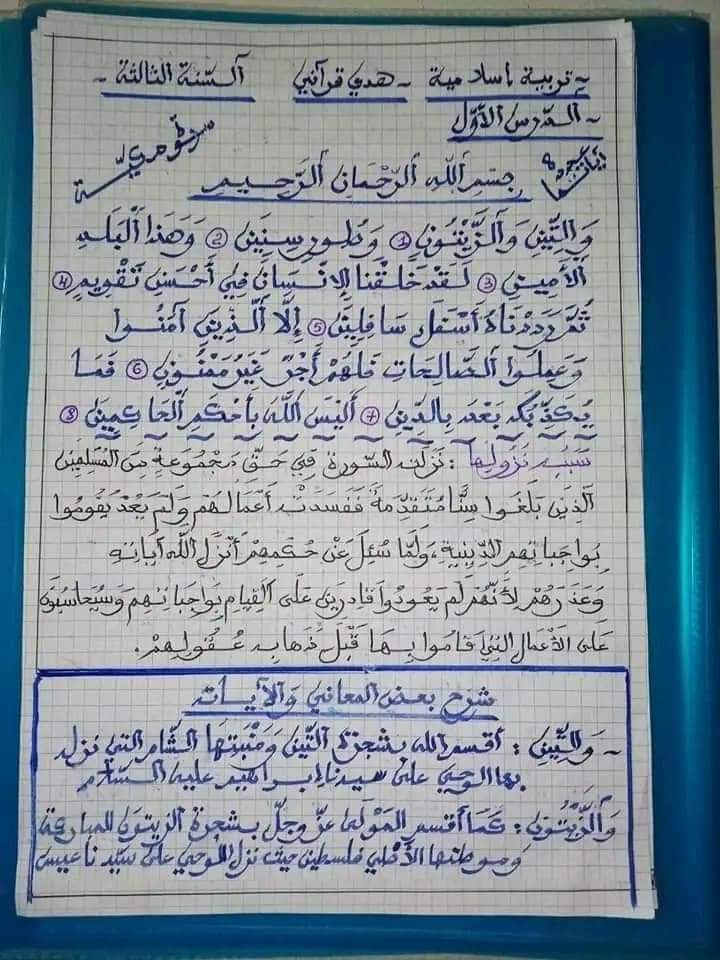 - تربية إسلامية - هدي قرآني السّنة الثالثة -
- الدّرس الأوّل
سورة مكيّة
آياتها 8
بِسْمِ اللهِ الرَّحْمَانِ الرَّحِيمِ
وَالتِّينِ وَالزَّيْتُونِ 1 وَطُورِ سِينِينَ 2 وَهَذَا الْبَلَدِ
الْأَمِينِ 3 لَقَدْ خَلَقْنَا الْإِنْسَانَ فِي أَحْسَنِ تَقْوِيمٍ 4
ثُمَّ رَدَدْنَاهُ أَسْفَلَ سَافِلِينَ 5 إِلَّا الَّذِينَ آمَنُوا
وَعَمِلُوا الصَّالِحَاتِ فَلَهُمْ أَجْرٌ غَيْرُ مَمْنُونٍ 6 فَمَا
يُكَذِّبُكَ بَعْدُ بِالدِّينِ 7 أَلَيْسَ اللَّهُ بِأَحْكَمِ الْحَاكِمِينَ 8
سَبَبُ نُزُولِهَا : نَزَلَتِ السُّورَةُ فِي حَقِّ مَجْمُوعَةٍ مِنَ المُسْلِمِينَ
الَّذِينَ بَلَغُوا سِنًّا مُتَقَدِّمَةً فَفَسَدَتْ أَعْمَالُهُمْ وَلَمْ يَعُدْ يَقُومُوا
بِوَاجِبَاتِهِمِ الدِّينِيَّةِ، وَلَمَّا سُئِلَ عَنْ حُكْمِهِمْ أَنْزَلَ اللهُ آيَاتِهِ
وَعَذَرَهُمْ لِأَنَّهُمْ لَمْ يَعُودُوا قَادِرِينَ عَلَى القِيَامِ بِوَاجِبَاتِهِمْ وَسَيُحَاسَبُونَ
عَلَى الأَعْمَالِ الَّتِي قَامُوا بِهَا قَبْلَ ذَهَابِ عُقُولِهِمْ.
شرح بعض المعاني والآيات
- وَالتِّينِ : أقسم الله بشجرة التّين وَمَنْبَتُهَا الشّام التي نزل
بها الوحي على سيدنا إبراهيم عليه السّلام
وَالزَّيْتُونِ : كَمَا أقسم المَوْلَى عزّ وجلّ بشجرة الزيتون المباركة
وموطنها الأصلي فلسطين حيث نزل الوحي على سيّدنا عيسى